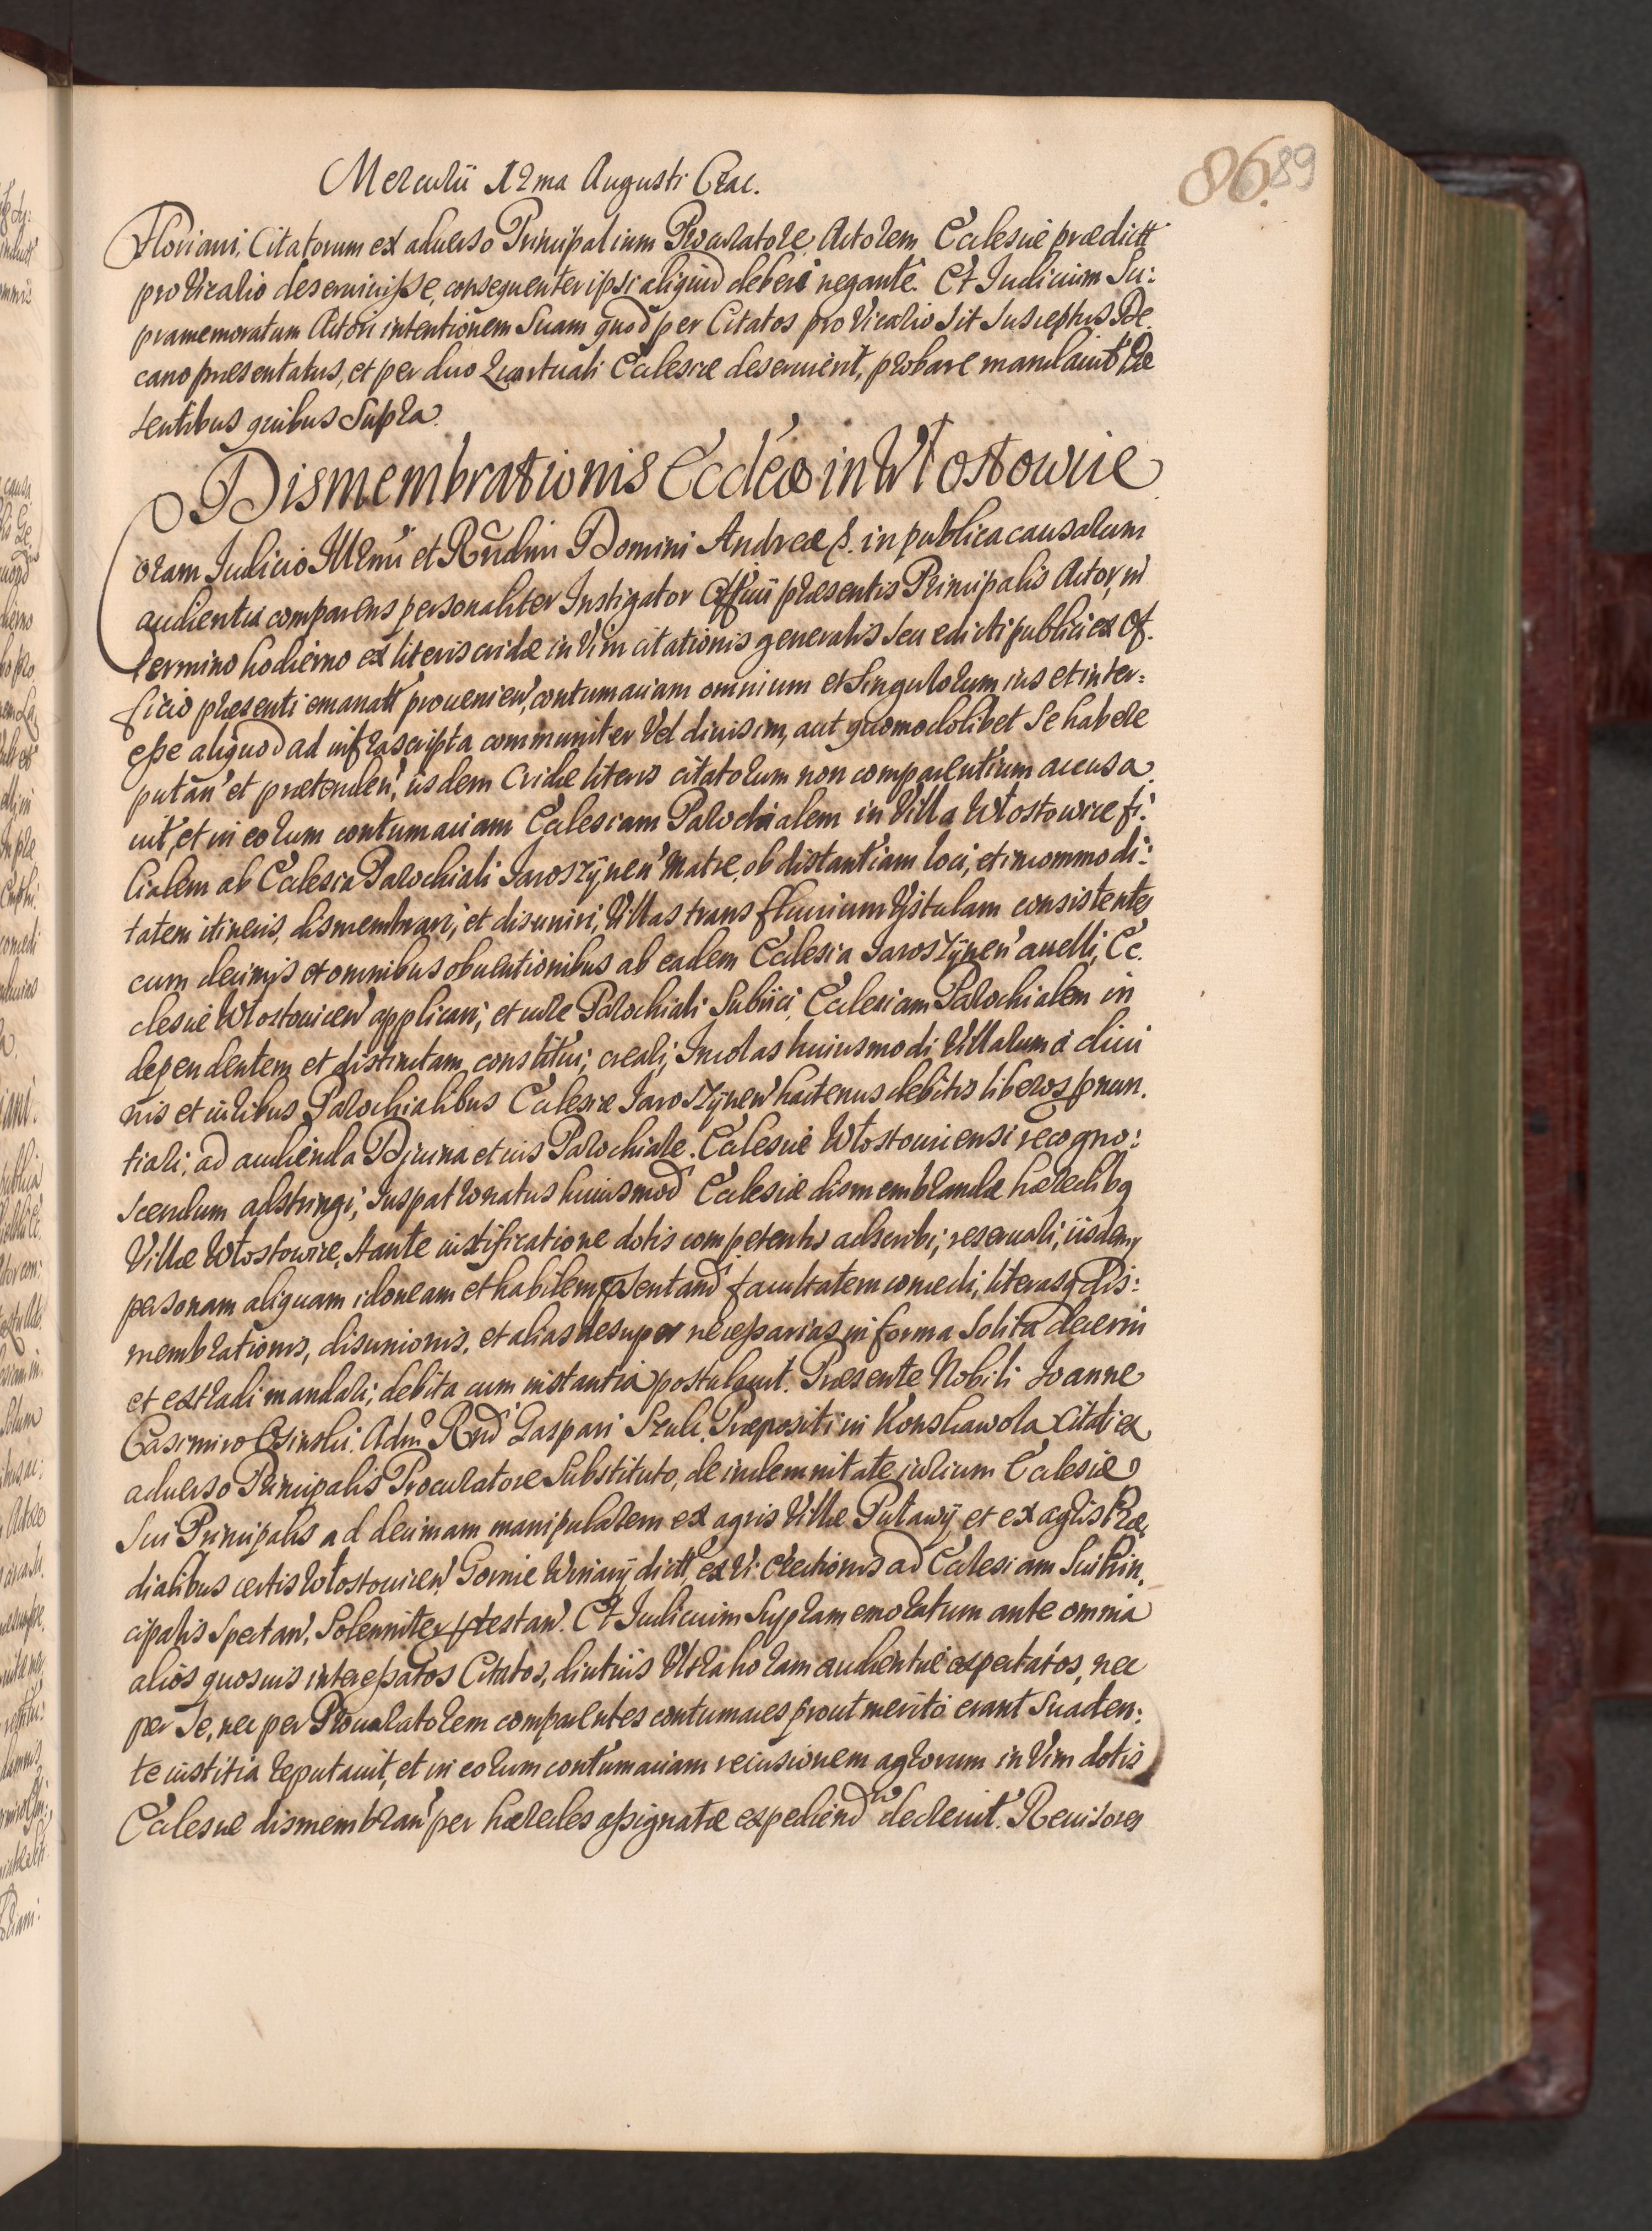 Mercurii 12ma Augusti Crac.
86. 89
Floriani, Citatorum ex aduerso Principalium Procuratore, Actorem Ecclesiæ prædictt
pro Vicario deseruiuisse, consequenter ipsi aliquid deberi negante. Et Iudicium Su:
pramemoratum Actori intentionem Suam quod per Citatos pro Vicario Sit Susceptus De
cano præsentatus, et per duo Quartuali Ecclesiæ deseruierit, probare mandauit Præ
sentibus quibus Supra.
Dismembrationis Eccleæ in Włostowice
Coram Iudicio Illrmi et Rndmi Domini Andreæ S. in publica causarum
audientia comparens personaliter Instigator Officii præsentis Principalis Actor, in
termino hodierno ex literis cridæ in Vim citationis generalis Seu edicti publici ex Of.
ficio præsenti emanatt prouenien', contumaciam omnium et Singulorum ius et inter=
esse aliquod ad infrascripta communiter Vel diuisim, aut quomodolibet Se habere
putan' et prætenden', iisdem Cridæ literis citatorum non comparentium accusa
uit, et in eorum contumaciam Ecclesiam Parochialem in Villa Włostowice fi:
lialem ab Ecclesia Parochiali Jaroszÿnen' Matre, ob distantiam loci, et incommodi:
tatem itineris, dismembrari, et disuniri, Villas trans fluuium Vistulam consistentes
cum decimis et omnibus obuentionibus ab eadem Ecclesia Jaroszÿnen' auelli, Ec.
clesiæ Włostouicen' applicari, et iure Parochiali Subiici, Ecclesiam Parochialem in
dependentem et distinctam constitui, creari, Incolas huiusmodi Villarum à diui
nis et iuribus Parochialibus Ecclesiæ Jaroszÿnen' hactenus debitis liberos pnun.
tiari, ad audienda Diuina et ius Parochiale Ecclesiæ Włostouicensi recogno:
scendum adstringi, Iuspatronatus huiusmod Ecclesiæ dismembrandæ hæredibq
Villæ Włostowice, stante iustificatione dotis competentis adscribi, reseruari, iisdemq
personam aliquam idoneam et habilem psentand' facultatem concedi, literasq Dis:
membrationis, disunionis, et alias desuper necessarias in forma Solita decerni
et extradi mandari, debita cum instantia postulauit. Præsente Nobili Joanne
Casimiro Osinski, Adm Rnd' Gaspari Szulc Præpositi in Konskawola Citati ex
aduerso Principalis Procuratore Substituto, de indemnitate iurium Ecclesiæ
Sui Principalis ad decimam manipularem ex agris Villæ Puławÿ et ex agris Præ
dialibus certis Włostouicen' Gornie Winarÿ dictt, ex Vi erectionis ad Ecclesiam Sui Prin.
cipalis Spectan', Solenniter ptestan'. Et Iudicium Supramemoratum ante omnia
alios quosuis interessatos Citatos, diutius Vltra horam audientiæ expectatos, nec
per Se, nec per Procuratorem comparentes contumaces prout meritò erant Suaden:
te iustitia reputauit, et in eorum contumaciam reuisionem agrorum in Vim dotis
Ecclesiæ dismembran' per hæredes assignatæ expediend decreuit. Reuisores